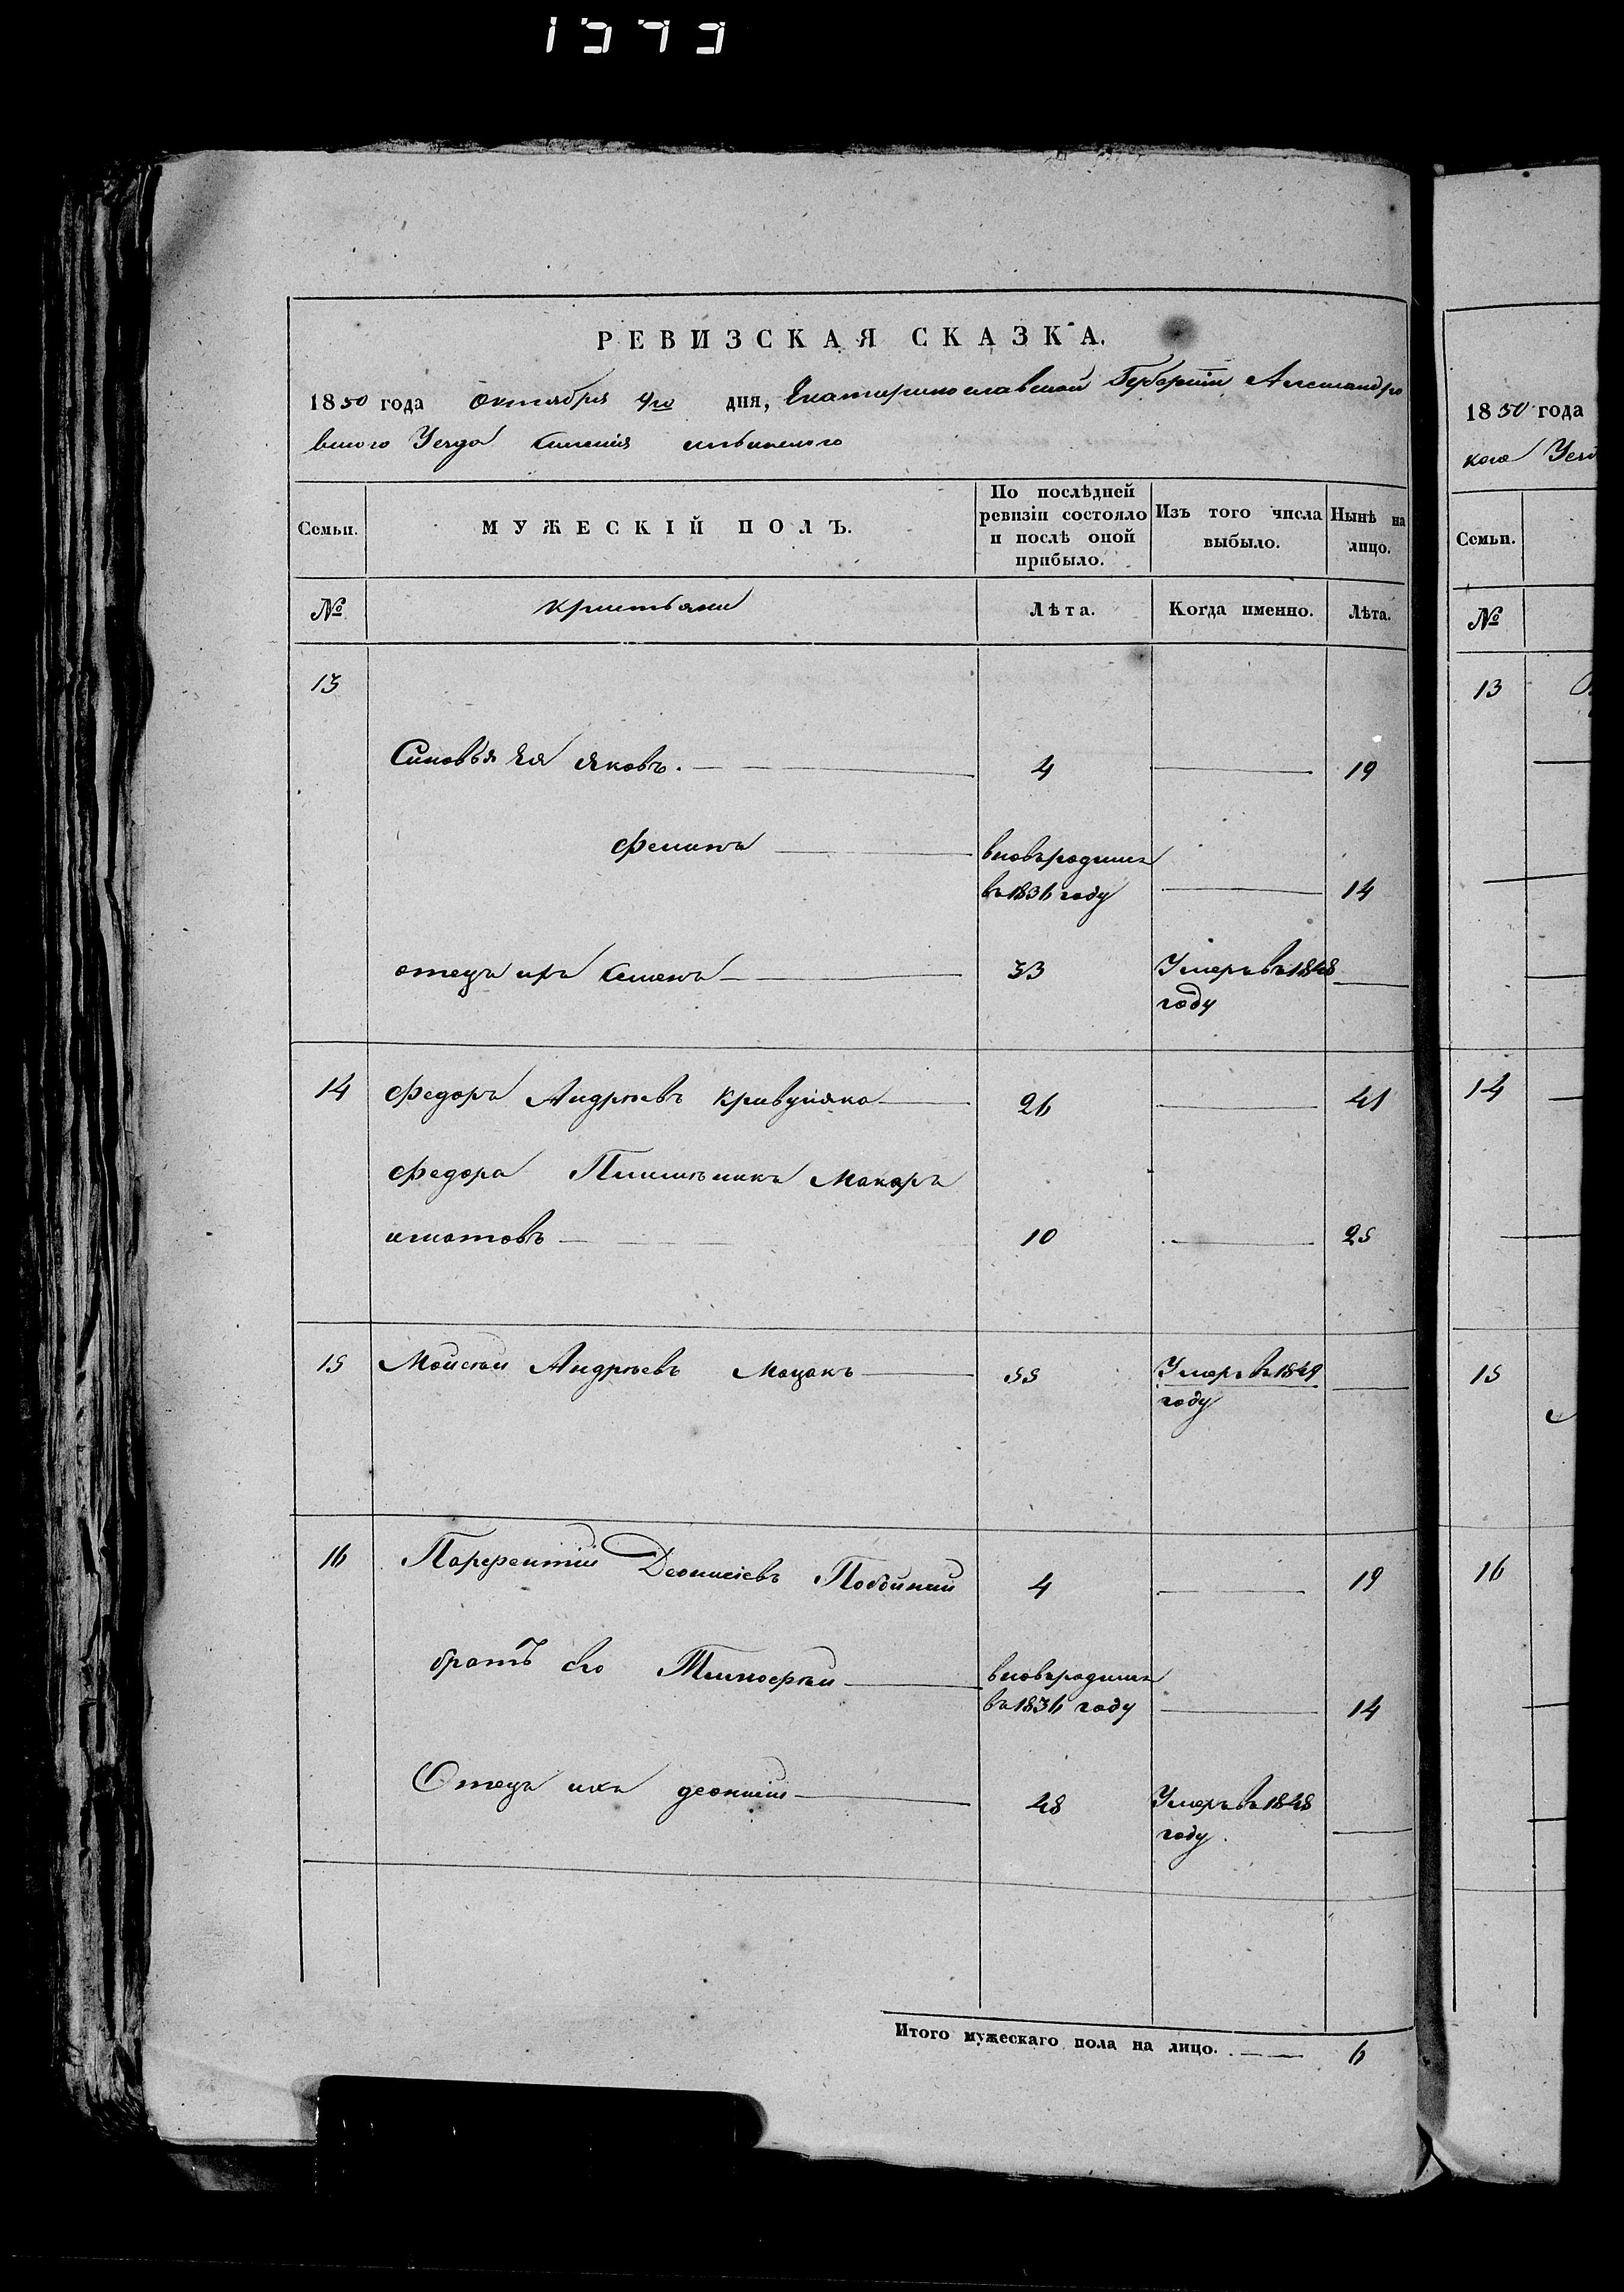 РЕВИЗСКАЯ СКАЗКА.
1850 года Октября 4го дня, Екатеринославской Губернiи Александро
вского Уезда
Семьи. МУЖЕСКІЙ ПОЛЪ. По послѣдней ревизіи состояло и послѣ оной прибыло. Изъ того числа выбыло. Нынѣ на лицо.
№ Лѣта. Когда именно. Лѣта.
13
Синовья Яковъ. 4 19
вновьродился
въ 1836 году 14
отецъ ихъ Семенъ 33 Умеръ въ 1848
году
14 Федоръ Андреевъ 26 41
Федора Племьникъ Макаръ
игнатовъ 10 25
15 Мойсей Андреевъ Мацакъ 55 Умеръ въ 1849
году
16 Парфентiй Деонисiевъ 4 19
братъ его Тимофей вновьродился
въ 1836 году 14
Отецъ ихъ деонисiй 48 Умеръ въ 1848
году.
Итого мужескаго пола на лицо. 6
1850 года
кого Уезд
Семьи.
№
13
14
15
16